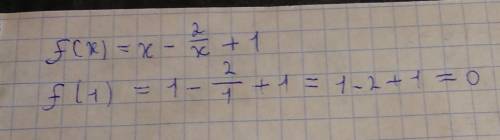 f(x) = x - \frac{2}{x} + 1
f(1) = 1 - \frac{2}{1} + 1 = 1 - 2 + 1 = 0